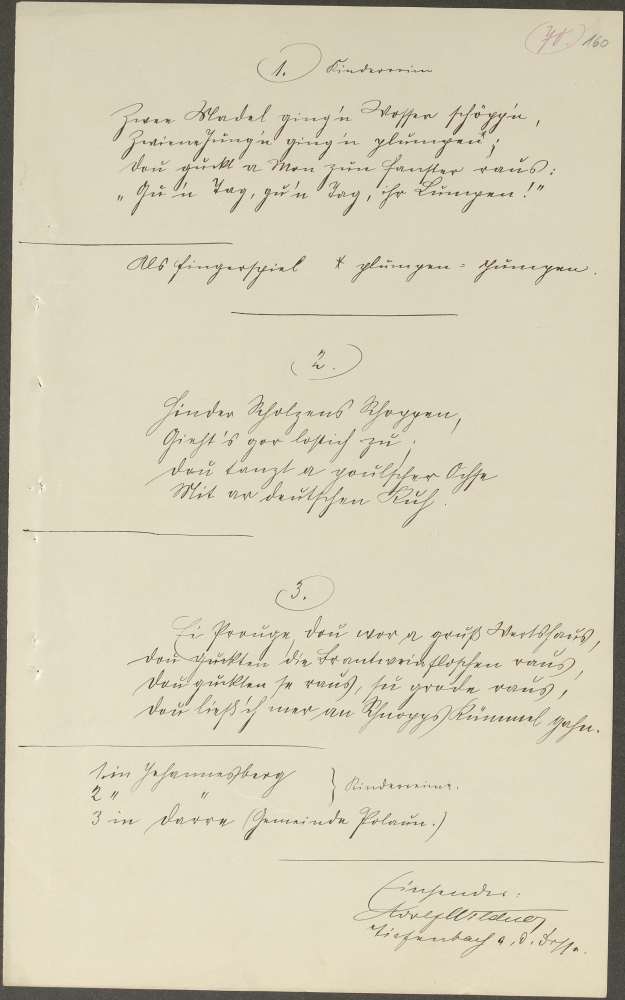 71. 160
1. Kinderreim
Zwee Madel ging'n Wosser schöpp'n,
Zwiene Jung'n ging'n plumpen*;
Dou guckt a Mon zun Fanster raus:
"Gu'n Tag, gu'n Tag, ihr Lumpen!"
Als Fingerspiel * plumpen = pumpen.
2.
Hinder Scholzens Schoppen,
Gieht's gor lostich zu;
Dou tanzt a poulscher Ochse
Mit ar deutschen Kuh.
3.
Ei Prouge, dou wor a gruß Wertshaus,
Dou guckten die Brantweinfloschen raus,
Dou guckten se raus, su grode raus,
Dou ließ'ch mer an Schnopps Kümmel gahn.
1 in Johannesberg
2 " " } Kinderreime.
3 in Darre (Gemeinde Polaun.)
Einsender:
Adolf Wildner
Tiefenbach a. d. Desse.